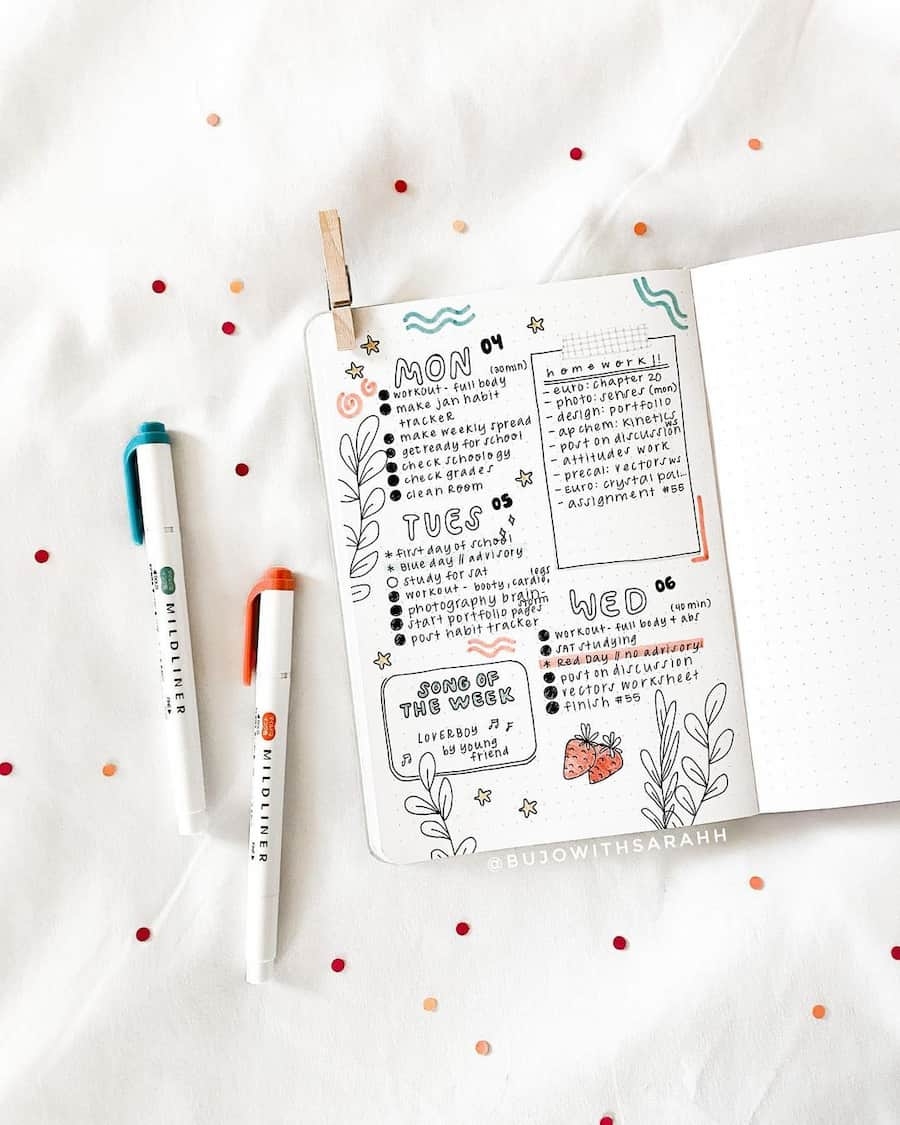 MON 04
(30min)
workout - full body
make jan habit
tracker
make weekly spread
get ready for school
check schoology
check grades
clean room
TUES 05
* first day of school
* Blue day // advisory
study for sat
legs
workout - booty, cardio,
photography brain-
storm
start portfolio pages
post habit tracker
SONG OF
THE WEEK
LOVERBOY
by young
friend
homework!!
- euro: chapter 20
- photo: senses (mon)
- design: portfolio
- ap chem: kinetics
ws
- post on discussion
- attitudes work
- precal: vectors ws
- Euro: crystal pal...
- assignment #55
WED 06
(40min)
workout - full body + abs
SAT studying
* Red Day // no advisory
post on discussion
vectors worksheet
finish #55
@BUJOWITHSARAHH
MILDLINER
MILDLINER